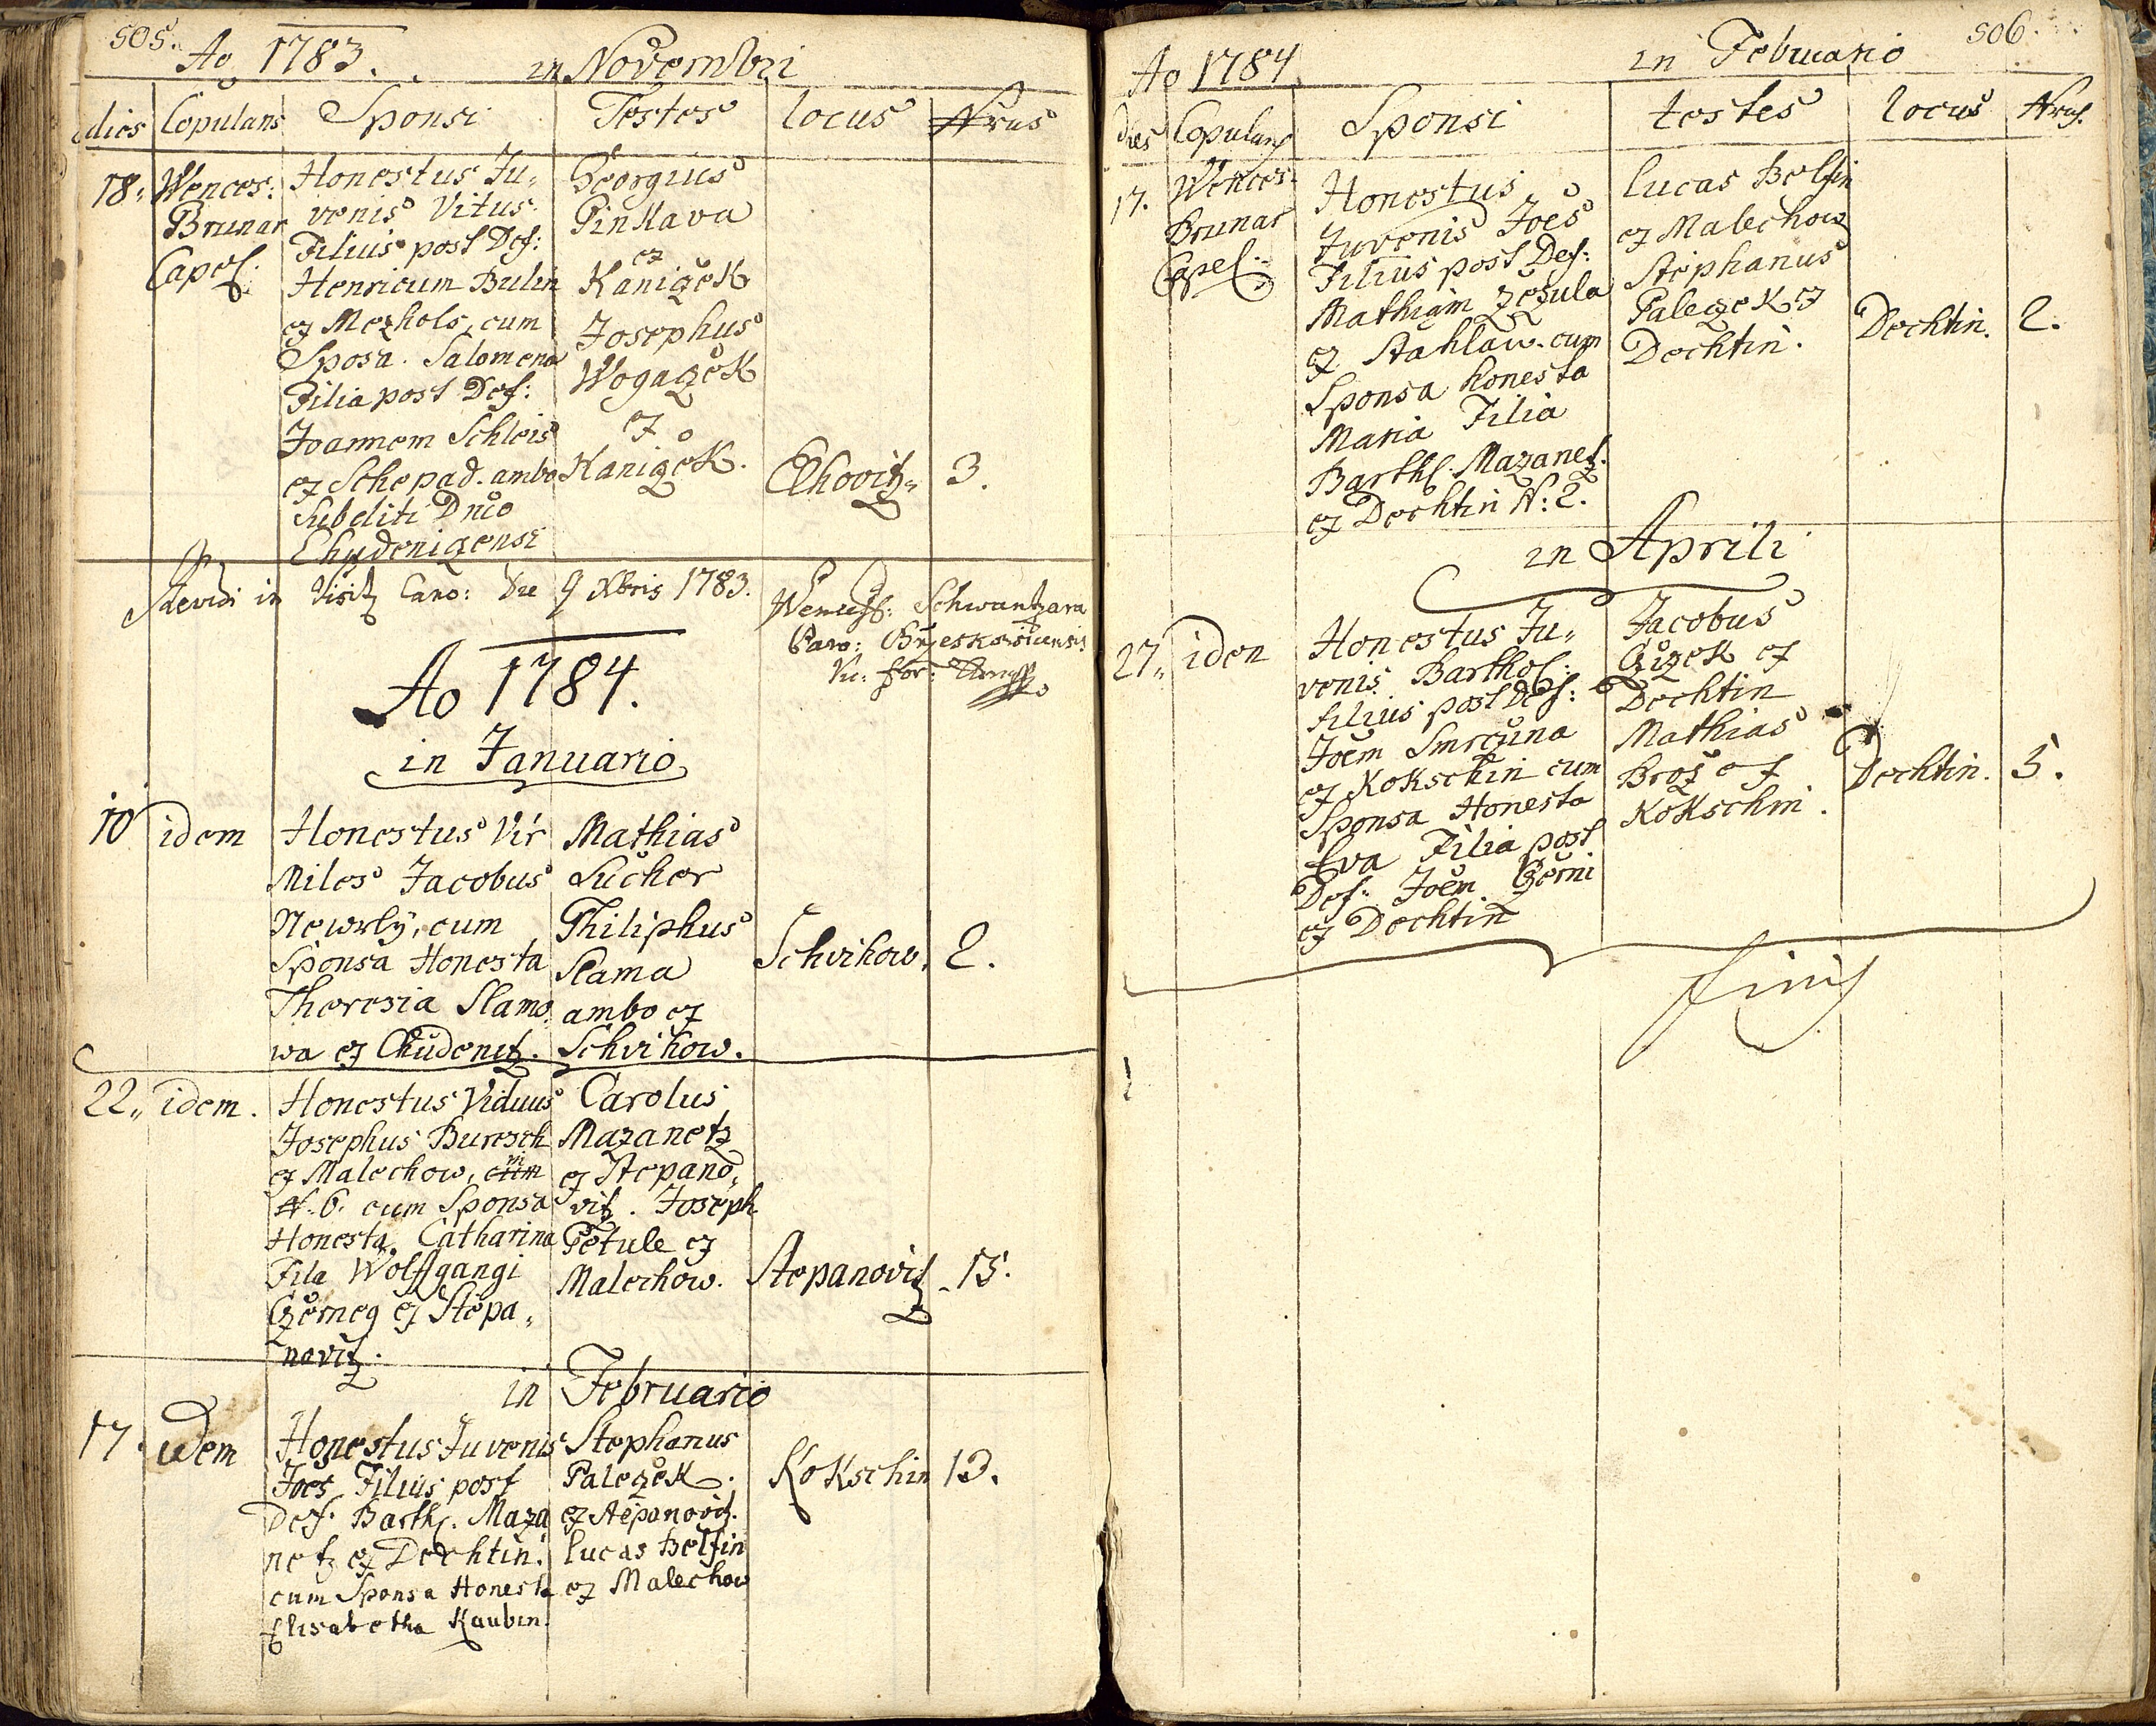 505.
Ao 1783. in Novembri
dies Copulans Sponsi Testes locus Nrus
18. Wences: Brunar Capel:
Honestus Ju„
venis Vitus
Filius post Def:
Henricum Bulin
ex Mezhols, cum
Sposa Salomena
Filia post Def:
Joannem Schleis
ex Schepad. ambo
Subditi Dnio
Chudenizensi
Georgius
Pinkava
ex
Kanizek
Josephus
Wogazek
ex
Kanizek.
Elhovitz„ 3.
in Visitz Cano: die 9 Xbris 1783.
Wencesl: Schwantzara
Paro:
Vic: for:
Ao 1784.
in Januario
10 idem
Honestus Vir
Miles Jacobus
Newrlÿ, cum
Sponsa Honesta
Theresia Slamo
wa ex Chudenitz.
Mathias
Lucher
Philiphus
Slama
ambo ex
Schvihow.
Schvihow. 2.
22„ idem.
Honestus Viduus
Josephus Buresch
ex Malechow,
N. 6. cum Sponsa
Honesta Catharina
Fila Wolffgangi
Czerneg ex Stepa„
novitz.
Carolus
Mazanetz
ex Stepano„
vitz. Joseph
Petule ex
Malechow.
Stepanovitz 15.
in Februario
17. idem
Honestus Juvenis
Joes Filius post
Def. Barth. Maza
netz ex Dechtin.
cum Sponsa Honesta
Elisabetha Kaubin.
Stephanus
Palezek.
ex Stepanovitz.
Lucas Belsin
ex Malechow
Kokschin 13.
506.
Ao 1784 in Februario
dies Copulans Sponsi testes locus Nrus.
17. Wences. Brunar Capel:
Honestus
Juvenis Joes
Filius post Def:
Mathiam Zezula
ex Stahlaw. cum
Sponsa honesta
Maria Filia
Barthl. Mazanetz.
ex Dechtin N: 2.
Lucas Belsin
ex Malechow
Stephanus
Palezek ex
Dechtin.
Dechtin. 2.
in Aprili
27„ idem
Honestus Ju„
venis Barthol:
filius post Def:
Joem Smrcuna
ex Kokschin cum
Sponsa Honesta
Eva Filia post
Def: Joem Czerni
ex Dechtin
Jacobus
Czizek ex
Dechtin
Mathias
Broz ex
Kokschin.
Dechtin. 5.
finis